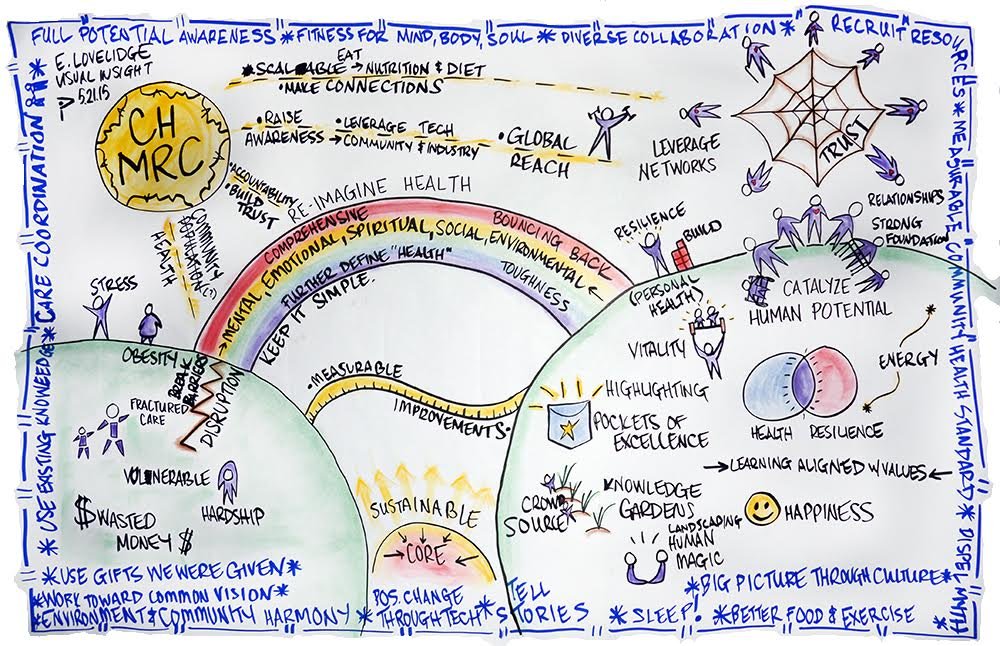 FULL POTENTIAL AWARENESS * FITNESS FOR MIND, BODY, SOUL * DIVERSE COLLABORATION * RECRUIT RESOURCES * MEASURABLE COMMUNITY HEALTH STANDARD * DISPEL MYTH
* USE EXISTING KNOWLEDGE * CARE COORDINATION
E. LOVELIDGE
VISUAL INSIGHT
5.21.15
CH
MRC
* SCALABLE EAT → NUTRITION & DIET
• MAKE CONNECTIONS
• RAISE
AWARENESS
→ • LEVERAGE TECH
COMMUNITY & INDUSTRY
• GLOBAL
REACH
• ACCOUNTABILITY
• BUILD
TRUST
COMMUNITY
POPULATION(?)
HEALTH
LEVERAGE
NETWORKS
TRUST
RE-IMAGINE HEALTH
COMPREHENSIVE
BOUNCING BACK
MENTAL, EMOTIONAL, SPIRITUAL, SOCIAL, ENVIRONMENTAL
FURTHER DEFINE "HEALTH"
TOUGHNESS
KEEP IT SIMPLE.
STRESS
OBESITY
BREAK
BARRIERS
DISRUPTION
FRACTURED
CARE
VULNERABLE
HARDSHIP
$ WASTED
MONEY $
• MEASURABLE
IMPROVEMENTS •
SUSTAINABLE
CORE
RESILIENCE
BUILD
(PERSONAL
HEALTH)
RELATIONSHIPS
STRONG
FOUNDATION
CATALYZE
HUMAN POTENTIAL
VITALITY
ENERGY
HIGHLIGHTING
POCKETS OF
EXCELLENCE
HEALTH RESILIENCE
→ LEARNING ALIGNED W VALUES ←
CROWD
SOURCE
KNOWLEDGE
GARDENS
LANDSCAPING
HUMAN
MAGIC
HAPPINESS
* USE GIFTS WE WERE GIVEN *
* WORK TOWARD COMMON VISION *
* ENVIRONMENT & COMMUNITY HARMONY *
POS. CHANGE
THROUGH TECH *
TELL
STORIES
* SLEEP!
* BIG PICTURE THROUGH CULTURE *
* BETTER FOOD & EXERCISE *